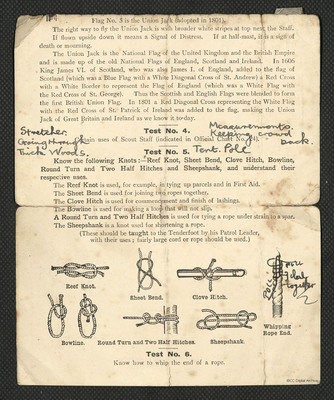 Flag No. 5 is the Union Jack (adopted in 1801).
The right way to fly the Union Jack is with broader white stripes at top next the Staff.
If flown upside down it means a Signal of Distress. If at half-mast, it is a sign of
death or mourning.
The Union Jack is the National Flag of the United Kingdom and the British Empire
and is made up of the old National Flags of England, Scotland and Ireland. In 1606
King James VI. of Scotland, who was also James I. of England, added to the flag of
Scotland (which was a Blue Flag with a White Diagonal Cross of St. Andrew) a Red Cross
with a White Border to represent the Flag of England (which was a White Flag with
the Red Cross of St. George). Thus the Scottish and English Flags were blended to form
the first British Union Flag. In 1801 a Red Diagonal Cross representing the White Flag
with the Red Cross of St. Patrick of Ireland was added to the flag, making the Union
Jack of Great Britain and Ireland as we know it to-day.
Stretcher.
Going through
Thick Woods.
Test No. 4.
Measurements.
Keeping crowd
back
uses of Scout Staff (indicated in Official Chart No. 4).
Tent Pole
Test No. 5.
Know the following Knots:—Reef Knot, Sheet Bend, Clove Hitch, Bowline,
Round Turn and Two Half Hitches and Sheepshank, and understand their
respective uses.
The Reef Knot is used, for example, in tying up parcels and in First Aid.
The Sheet Bend is used for joining two ropes together.
The Clove Hitch is used for commencement and finish of lashings.
The Bowline is used for making a loop that will not slip.
A Round Turn and Two Half Hitches is used for tying a rope under strain to a spar.
The Sheepshank is a knot used for shortening a rope.
(These should be taught to the Tenderfoot by his Patrol Leader,
with their uses; fairly large cord or rope should be used.)
Reef Knot.
Sheet Bend.
Clove Hitch.
together
Whipping
Rope End.
Bowline.
Round Turn and Two Half Hitches.
Sheepshank.
Test No. 6.
Know how to whip the end of a rope.